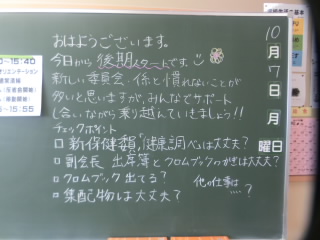 おはようございます。
今日から後期スタートです。
新しい委員会、係と慣れないことが
多いと思いますが、みんなでサポート
し合いながら乗り越えていきましょう!!
チェックポイント
□ 新保健委員、健康調べは大丈夫?
□ 副会長 出席簿とクロムブックのかぎは大丈夫?
□ クロムブック出てる?
□ 集配物は大丈夫?
他の仕事は…?
10
月
7
日
月
曜日
15:40
オリエンテーション
15:55